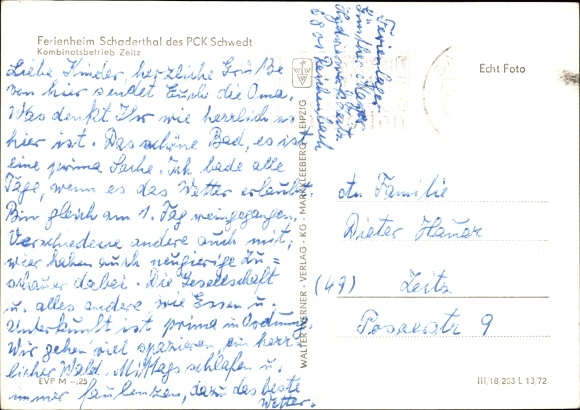 Ferienheim Schaderthal des PCK Schwedt
Kombinatsbetrieb Zeitz
Liebe Kinder, herzliche Grüße
von hier sendet Euch die Oma.
Was denkt Ihr wie herrlich es
hier ist. Das schöne Bad, es ist
eine prima Sache. Ich bade alle
Tage, wenn es das Wetter erlaubt.
Bin gleich am 1. Tag reingegangen.
Verschiedene andere auch mit,
wier haben auch neugierige Zu=
schauer dabei. Die Gesellschaft
u. alles andere wie Essen u.
Unterkunft ist prima in Ordnung.
Wir gehen viel spazieren, ein herr=
licher Wald. Mittags schlafen u.
immer faulenzen, dazu das beste
Wetter.
EVP M -,25
WALTER WERNER - VERLAG - KG - MARKKLEEBERG - LEIPZIG
Ferienlager
Hydrierwerk Zeitz
6801 Reichenbach
Echt Foto
An Familie
Dieter Hauer
(49) Zeitz
Posaerstr 9
III/18/203 L 13/72